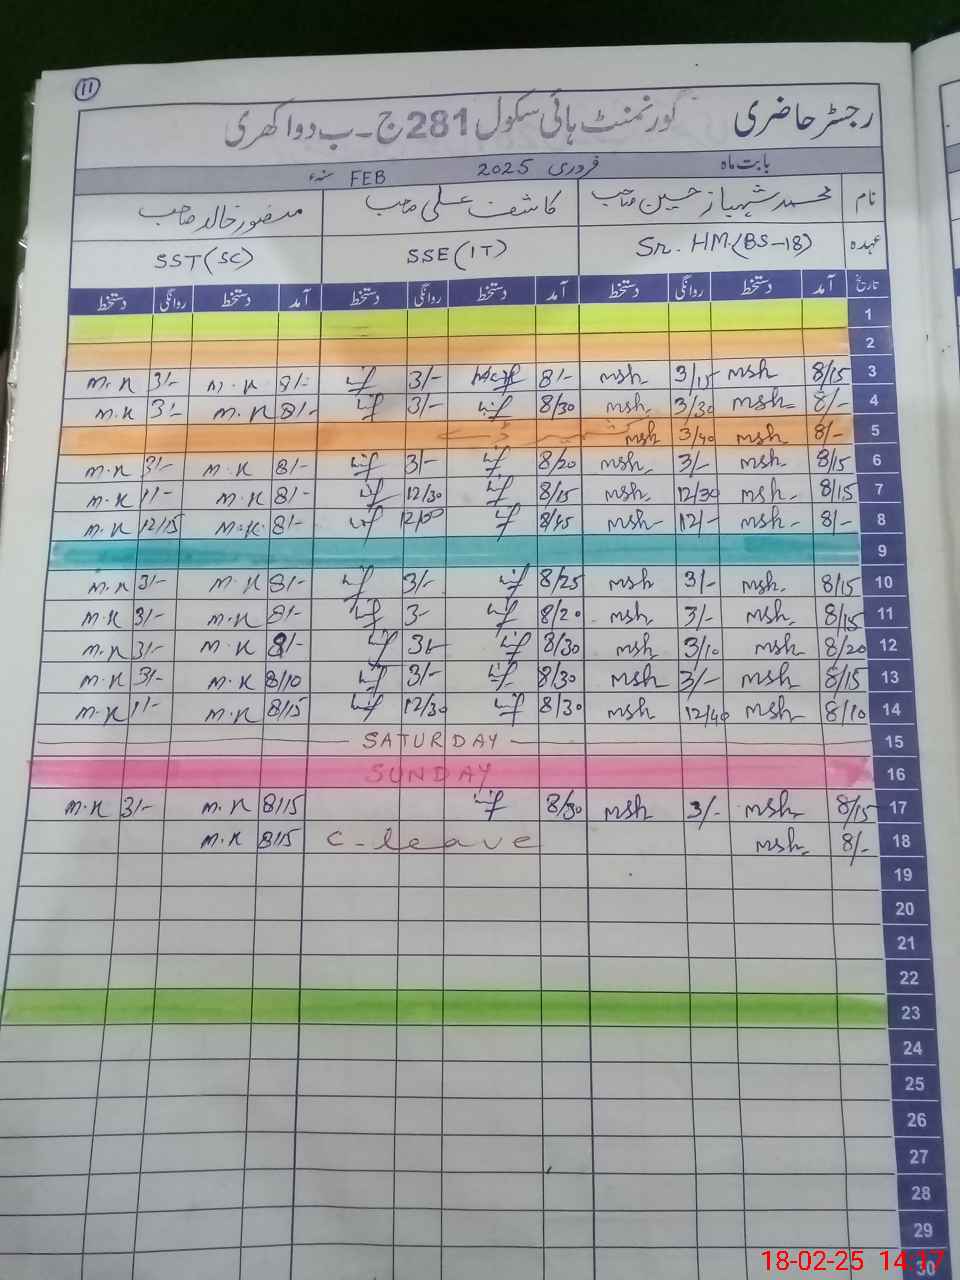 11
رجسٹر حاضری گورنمنٹ ہائی سکول 281 ج۔ب دواکھری
بابت ماہ فروری 2025 FEB سنہء
نام محمد شہباز حسین صاحب کاشف علی صاحب منصور خالد صاحب
عہدہ Sr. HM.(BS-18) SSE(IT) SST(SC)
تاریخ آمد دستخط روانگی دستخط آمد دستخط روانگی دستخط آمد دستخط روانگی دستخط
1
2
3 8/15 msh 3/15 msh 8/- 3/- 8/- M.K 3/- M.K
4 8/- msh 3/30 msh 8/30 3/- 8/- M.K 3/- M.K
5 8/- msh 3/40 msh کشمیر ڈے
6 8/15 msh 3/- msh 8/20 3/- 8/- M.K 3/- M.K
7 8/15 msh 12/30 msh 8/15 12/30 8/- M.K 1/- M.K
8 8/- msh 12/- msh 8/45 8/- M.K 12/15 M.K
9
10 8/15 msh 3/- msh 8/25 3/- 8/- M.K 3/- M.K
11 8/15 msh 3/- msh 8/20 3- 8/- M.K 3/- M.K
12 8/20 msh 3/10 msh 8/30 8/- M.K 3/- M.K
13 8/15 msh 3/- msh 8/30 3/- 8/10 M.K 3/- M.K
14 8/10 msh 12/40 msh 8/30 12/30 8/15 M.K 1/- M.K
15 SATURDAY
16 SUNDAY
17 8/15 msh 3/- msh 8/30 8/15 M.K 3/- M.K
18 8/- msh C-leave 8/15 M.K
19
20
21
22
23
24
25
26
27
28
29
30
18-02-25 14:17